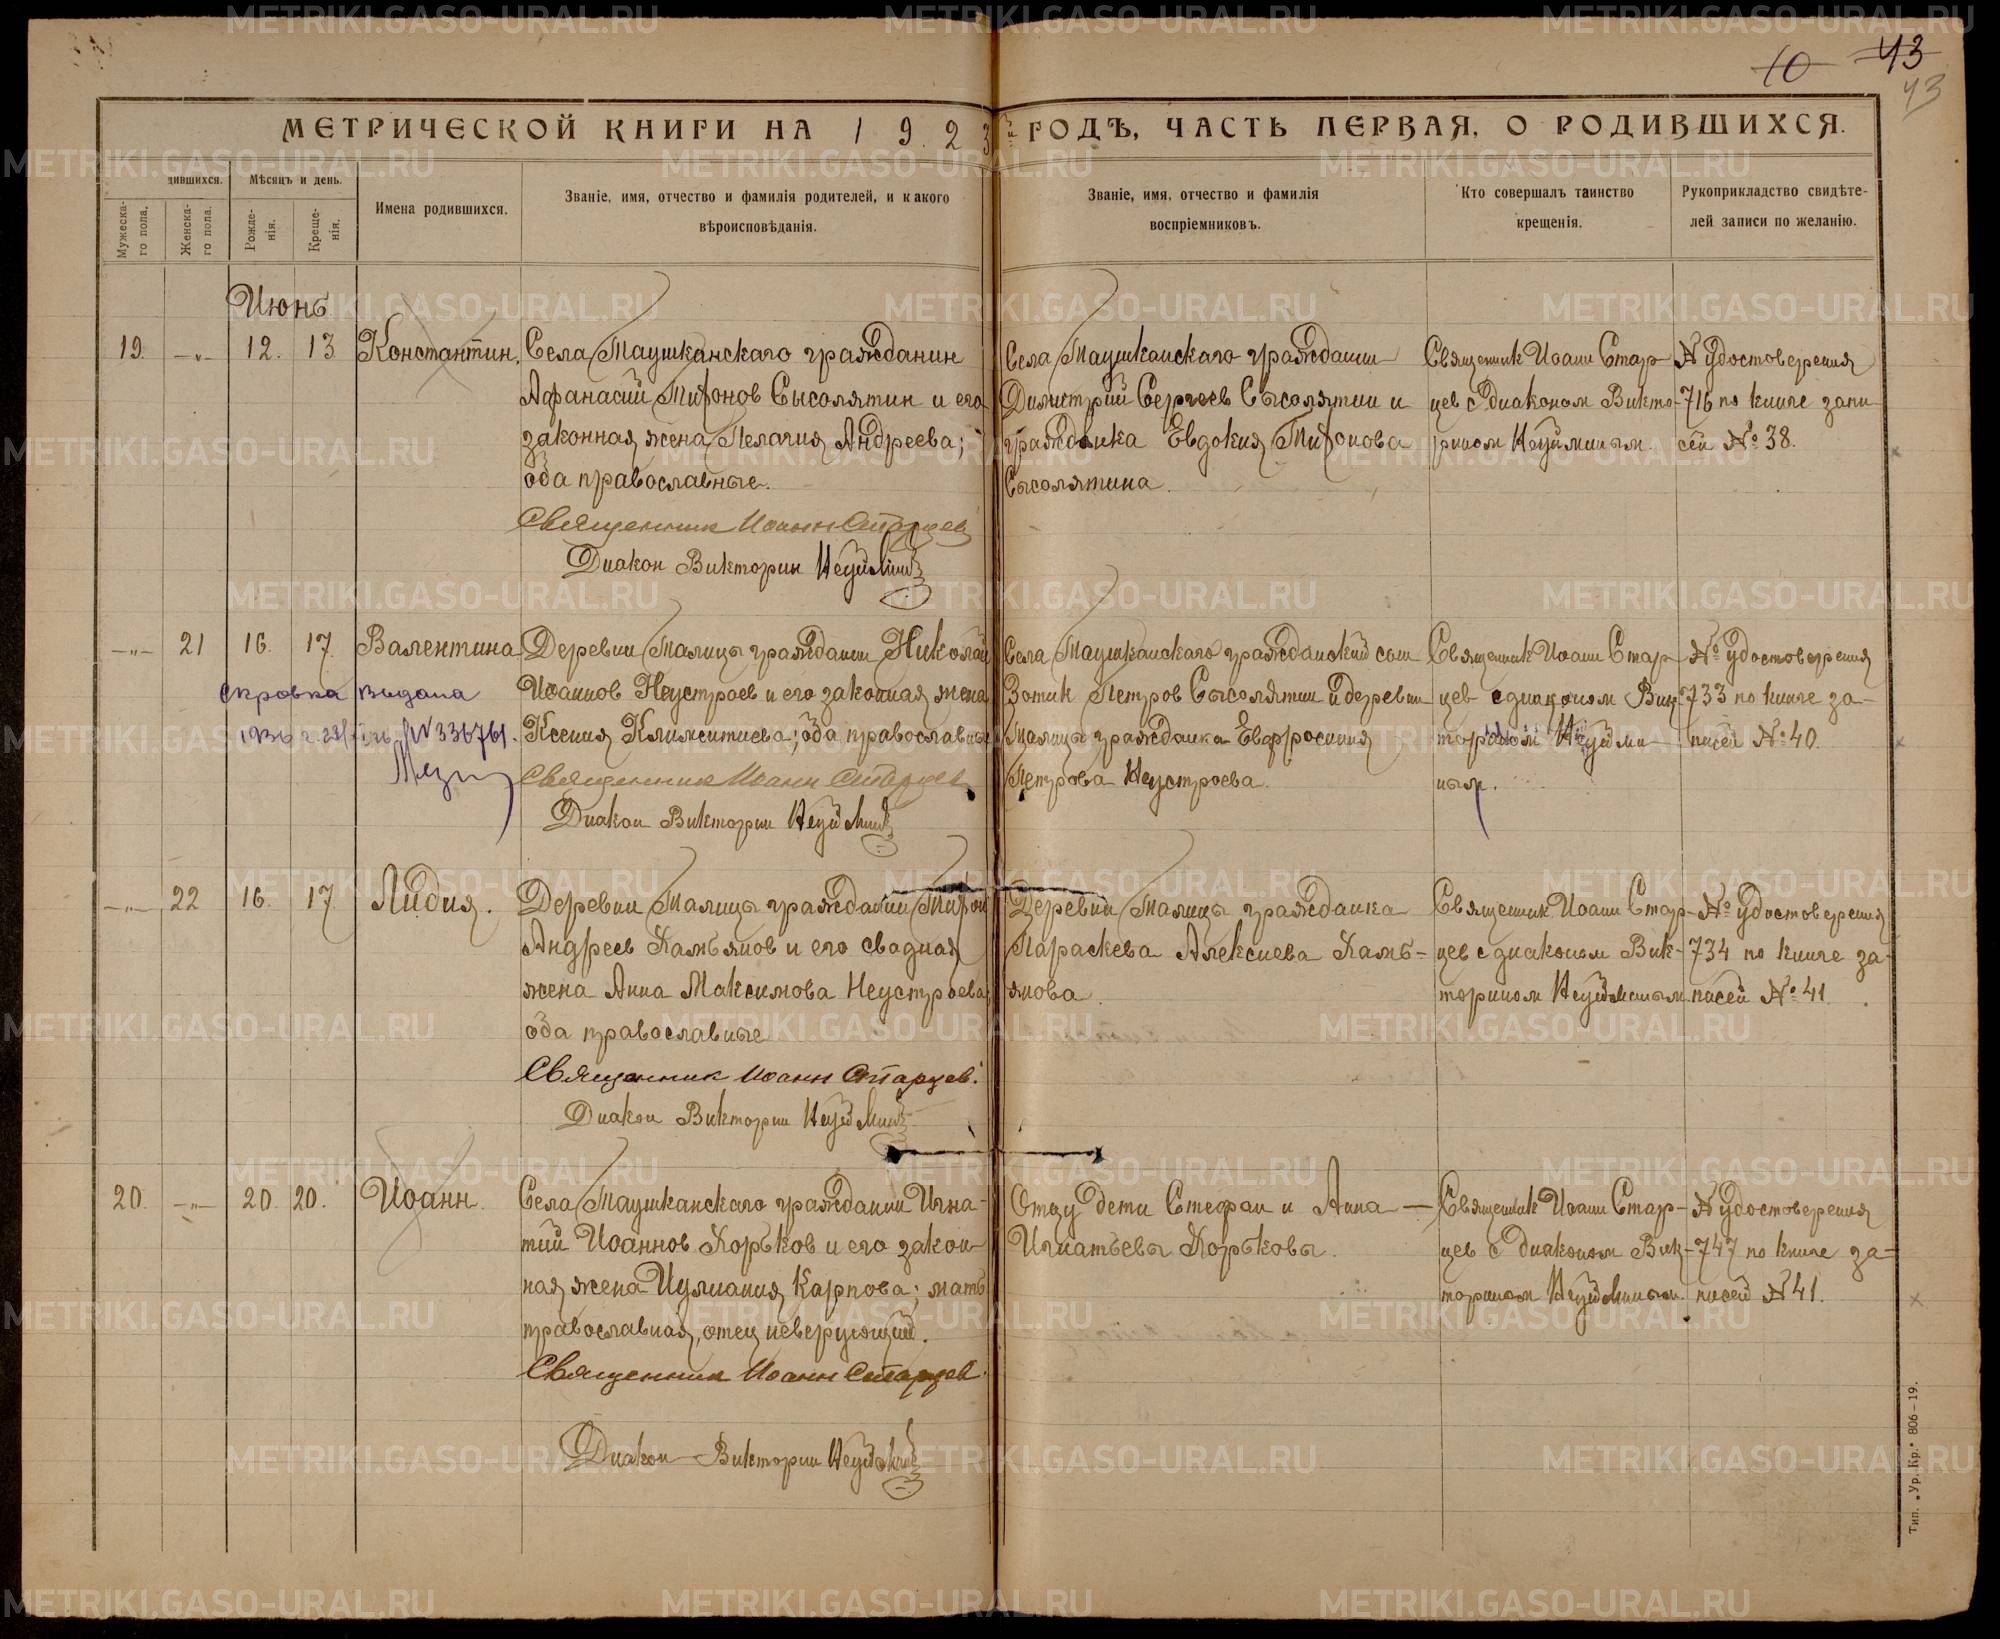 10 43
43
МЕТРИЧЕСКОЙ КНИГИ НА 1923й ГОДЪ, ЧАСТЬ ПЕРВАЯ, О РОДИВШИХСЯ.
дившихся.
Мужеска-
го пола.
Женска-
го пола.
Мѣсяцъ и день.
Рожде-
нія.
Креще-
нія.
Имена родившихся.
Званіе, имя, отчество и фамилія родителей, и какого
вѣроисповѣданія.
Званіе, имя, отчество и фамилія
воспріемниковъ.
Кто совершалъ таинство
крещенія.
Рукоприкладство свидѣте-
лей записи по желанію.
Июнь
19. -„- 12. 13 Константин.
Села Таушканскаго гражданин
Афанасий Тифонов Сысолятин и его
законная жена Пелагия Андреева;
оба православные.
Священник Иоанн Старцев
Диакон Викторин Неуймин
Села Таушканскаго гражданин
Димитрий Сергеев Сысолятин и
гражданка Евдокия Тифонова
Сысолятина.
Священник Иоанн Стар-
цев с диаконом Викто-
рином Неуйминым.
№ удостоверения
716 по книге запи
сей № 38.
-„- 21 16. 17. Валентина
Справка выдана
№ 336761.
Деревни Талицы гражданин Николай
Иоаннов Неустроев и его законная жена
Ксения Климентиева; оба православные
Священник Иоанн Старцев
Диакон Викторин Неуймин
Села Таушканскаго гражданский сын
Зотик Петров Сысолятин и деревни
Талицы гражданка Евфросиния
Петрова Неустроева.
Священник Иоанн Стар
цев с диаконом Вик
торином Неуйми
ным.
№ удостоверения
733 по книге за-
писей № 40.
-„- 22 16. 17. Лидия.
Деревни Талицы гражданин Тифон
Андреев Хамьянов и его сводная
жена Анна Максимова Неустроева
оба православные
Священник Иоанн Старцев.
Диакон Викторин Неуймин
Деревни Талицы гражданка
Параскева Алексиева Хамь-
янова.
Священник Иоанн Стар-
цев с диаконом Вик-
торином Неуйминым.
№ удостоверения
734 по книге за-
писей № 41.
20. -„- 20. 20. Иоанн.
Села Таушканскаго гражданин Игна-
тий Иоаннов Хорьков и его закон-
ная жена Иулиания Карпова; мать
православная, отец неверующий.
Священник Иоанн Старцев.
Диакон Викторин Неуймин
Отцу дети Стефан и Анна
Игнатьевы Хорьковы.
Священник Иоанн Стар-
цев с диаконом Вик-
торином Неуйминым.
№ удостоверения
747 по книге за-
писей № 41.
Тип. „Ур. Кр.“ 806—19.
METRIKI.GASO-URAL.RU